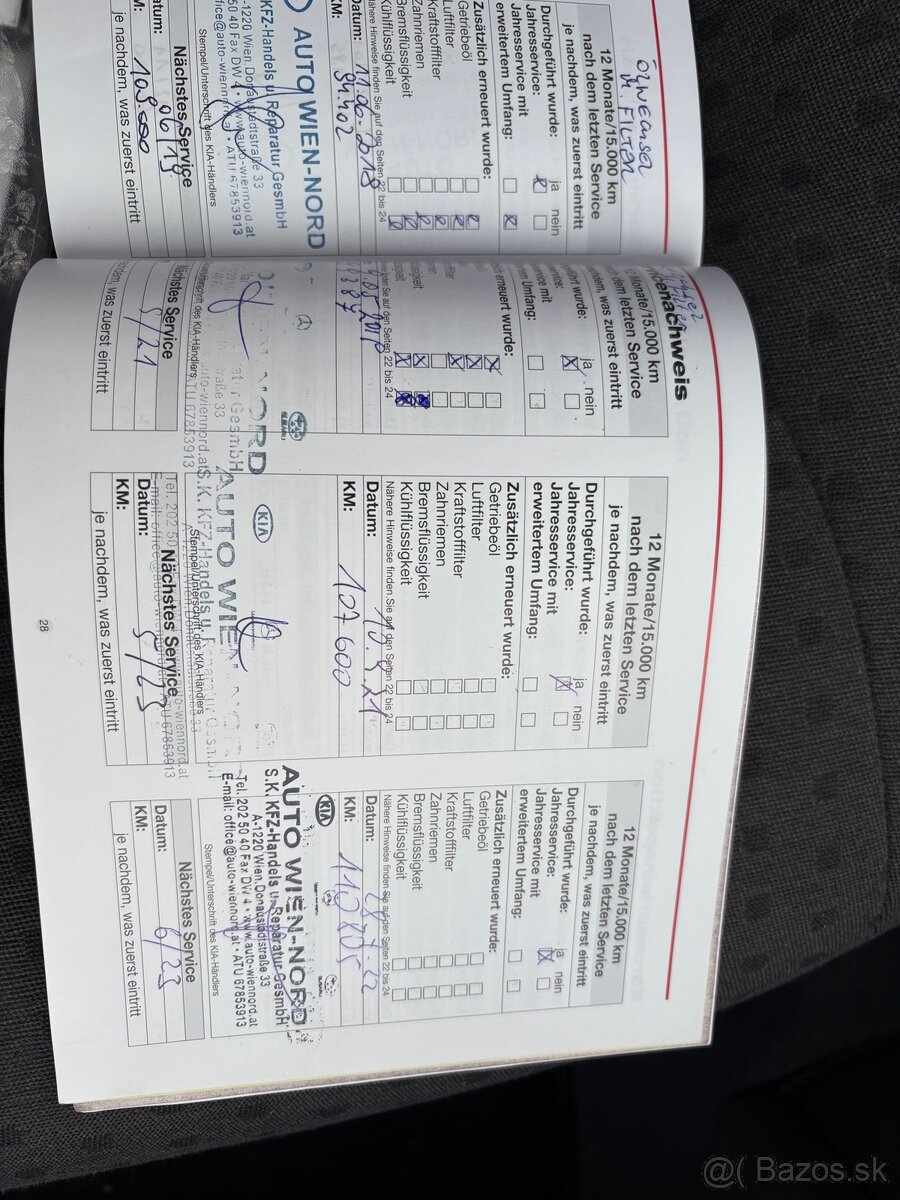 Ölwechsel
m. Filter
12 Monate/15.000 km
nach dem letzten Service
je nachdem, was zuerst eintritt
Durchgeführt wurde: ja nein
Jahresservice:
Jahresservice mit
erweitertem Umfang:
Zusätzlich erneuert wurde:
Getriebeöl
Luftfilter
Kraftstofffilter
Zahnriemen
Bremsflüssigkeit
Kühlflüssigkeit
Nähere Hinweise finden Sie auf den Seiten 22 bis 24
Datum: 11.06.2018
KM: 94.402
AUTO WIEN-NORD
KFZ-Handels u. Reparatur GesmbH
-1220 Wien, Donaustadtstraße 33
50 40 Fax DW 4 • www.auto-wiennord.at
office@auto-wiennord.at • ATU 67853913
Stempel/Unterschrift des KIA-Händlers
Nächstes Service
Datum: 06/19
KM: 109.000
je nachdem, was zuerst eintritt
benachweis
Monate/15.000 km
dem letzten Service
dem, was zuerst eintritt
führt wurde: ja nein
service:
service mit
Umfang:
h erneuert wurde:
auf den Seiten 22 bis 24
ORD
GesmbH
raße 33
uto-wiennord.at
ATU 67853913
des KIA-Händlers
SUBARU
Nächstes Service
5/21
was zuerst eintritt
12 Monate/15.000 km
nach dem letzten Service
je nachdem, was zuerst eintritt
Durchgeführt wurde: ja nein
Jahresservice:
Jahresservice mit
erweitertem Umfang:
Zusätzlich erneuert wurde:
Getriebeöl
Luftfilter
Kraftstofffilter
Zahnriemen
Bremsflüssigkeit
Kühlflüssigkeit
Nähere Hinweise finden Sie auf den Seiten 22 bis 24
Datum:
KM: 107600
KIA
AUTO WIE
S.K. KFZ-Handels u.
Tel. 202 50
Stempel/Unterschrift des KIA-Händlers
Nächstes Service
Datum: 5/23
KM:
je nachdem, was zuerst eintritt
12 Monate/15.000 km
nach dem letzten Service
je nachdem, was zuerst eintritt
Durchgeführt wurde: ja nein
Jahresservice:
Jahresservice mit
erweitertem Umfang:
Zusätzlich erneuert wurde:
Getriebeöl
Luftfilter
Kraftstofffilter
Zahnriemen
Bremsflüssigkeit
Kühlflüssigkeit
Nähere Hinweise finden Sie auf den Seiten 22 bis 24
Datum:
KM:
KIA
AUTO WIEN-NORD
S.K. KFZ-Handels u. Reparatur GesmbH
A-1220 Wien, Donaustadtstraße 33
Tel. 202 50 40 Fax DW 4 • www.auto-wiennord.at
E-mail: office@auto-wiennord.at • ATU 67853913
Stempel/Unterschrift des KIA-Händlers
Nächstes Service
Datum: 6/23
KM:
je nachdem, was zuerst eintritt
28
@( Bazos.sk